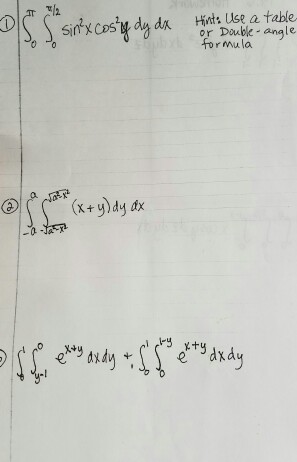 ① ∫₀^π ∫₀^{π/2} sin²x cos²y dy dx Hint: Use a table
or Double-angle
formula
② ∫_{-a}^{a} ∫_{-√(a²-x²)}^{√(a²-x²)} (x+y) dy dx
∫₀^1 ∫_{y-1}^0 e^{x+y} dx dy + ∫₀^1 ∫₀^{1-y} e^{x+y} dx dy